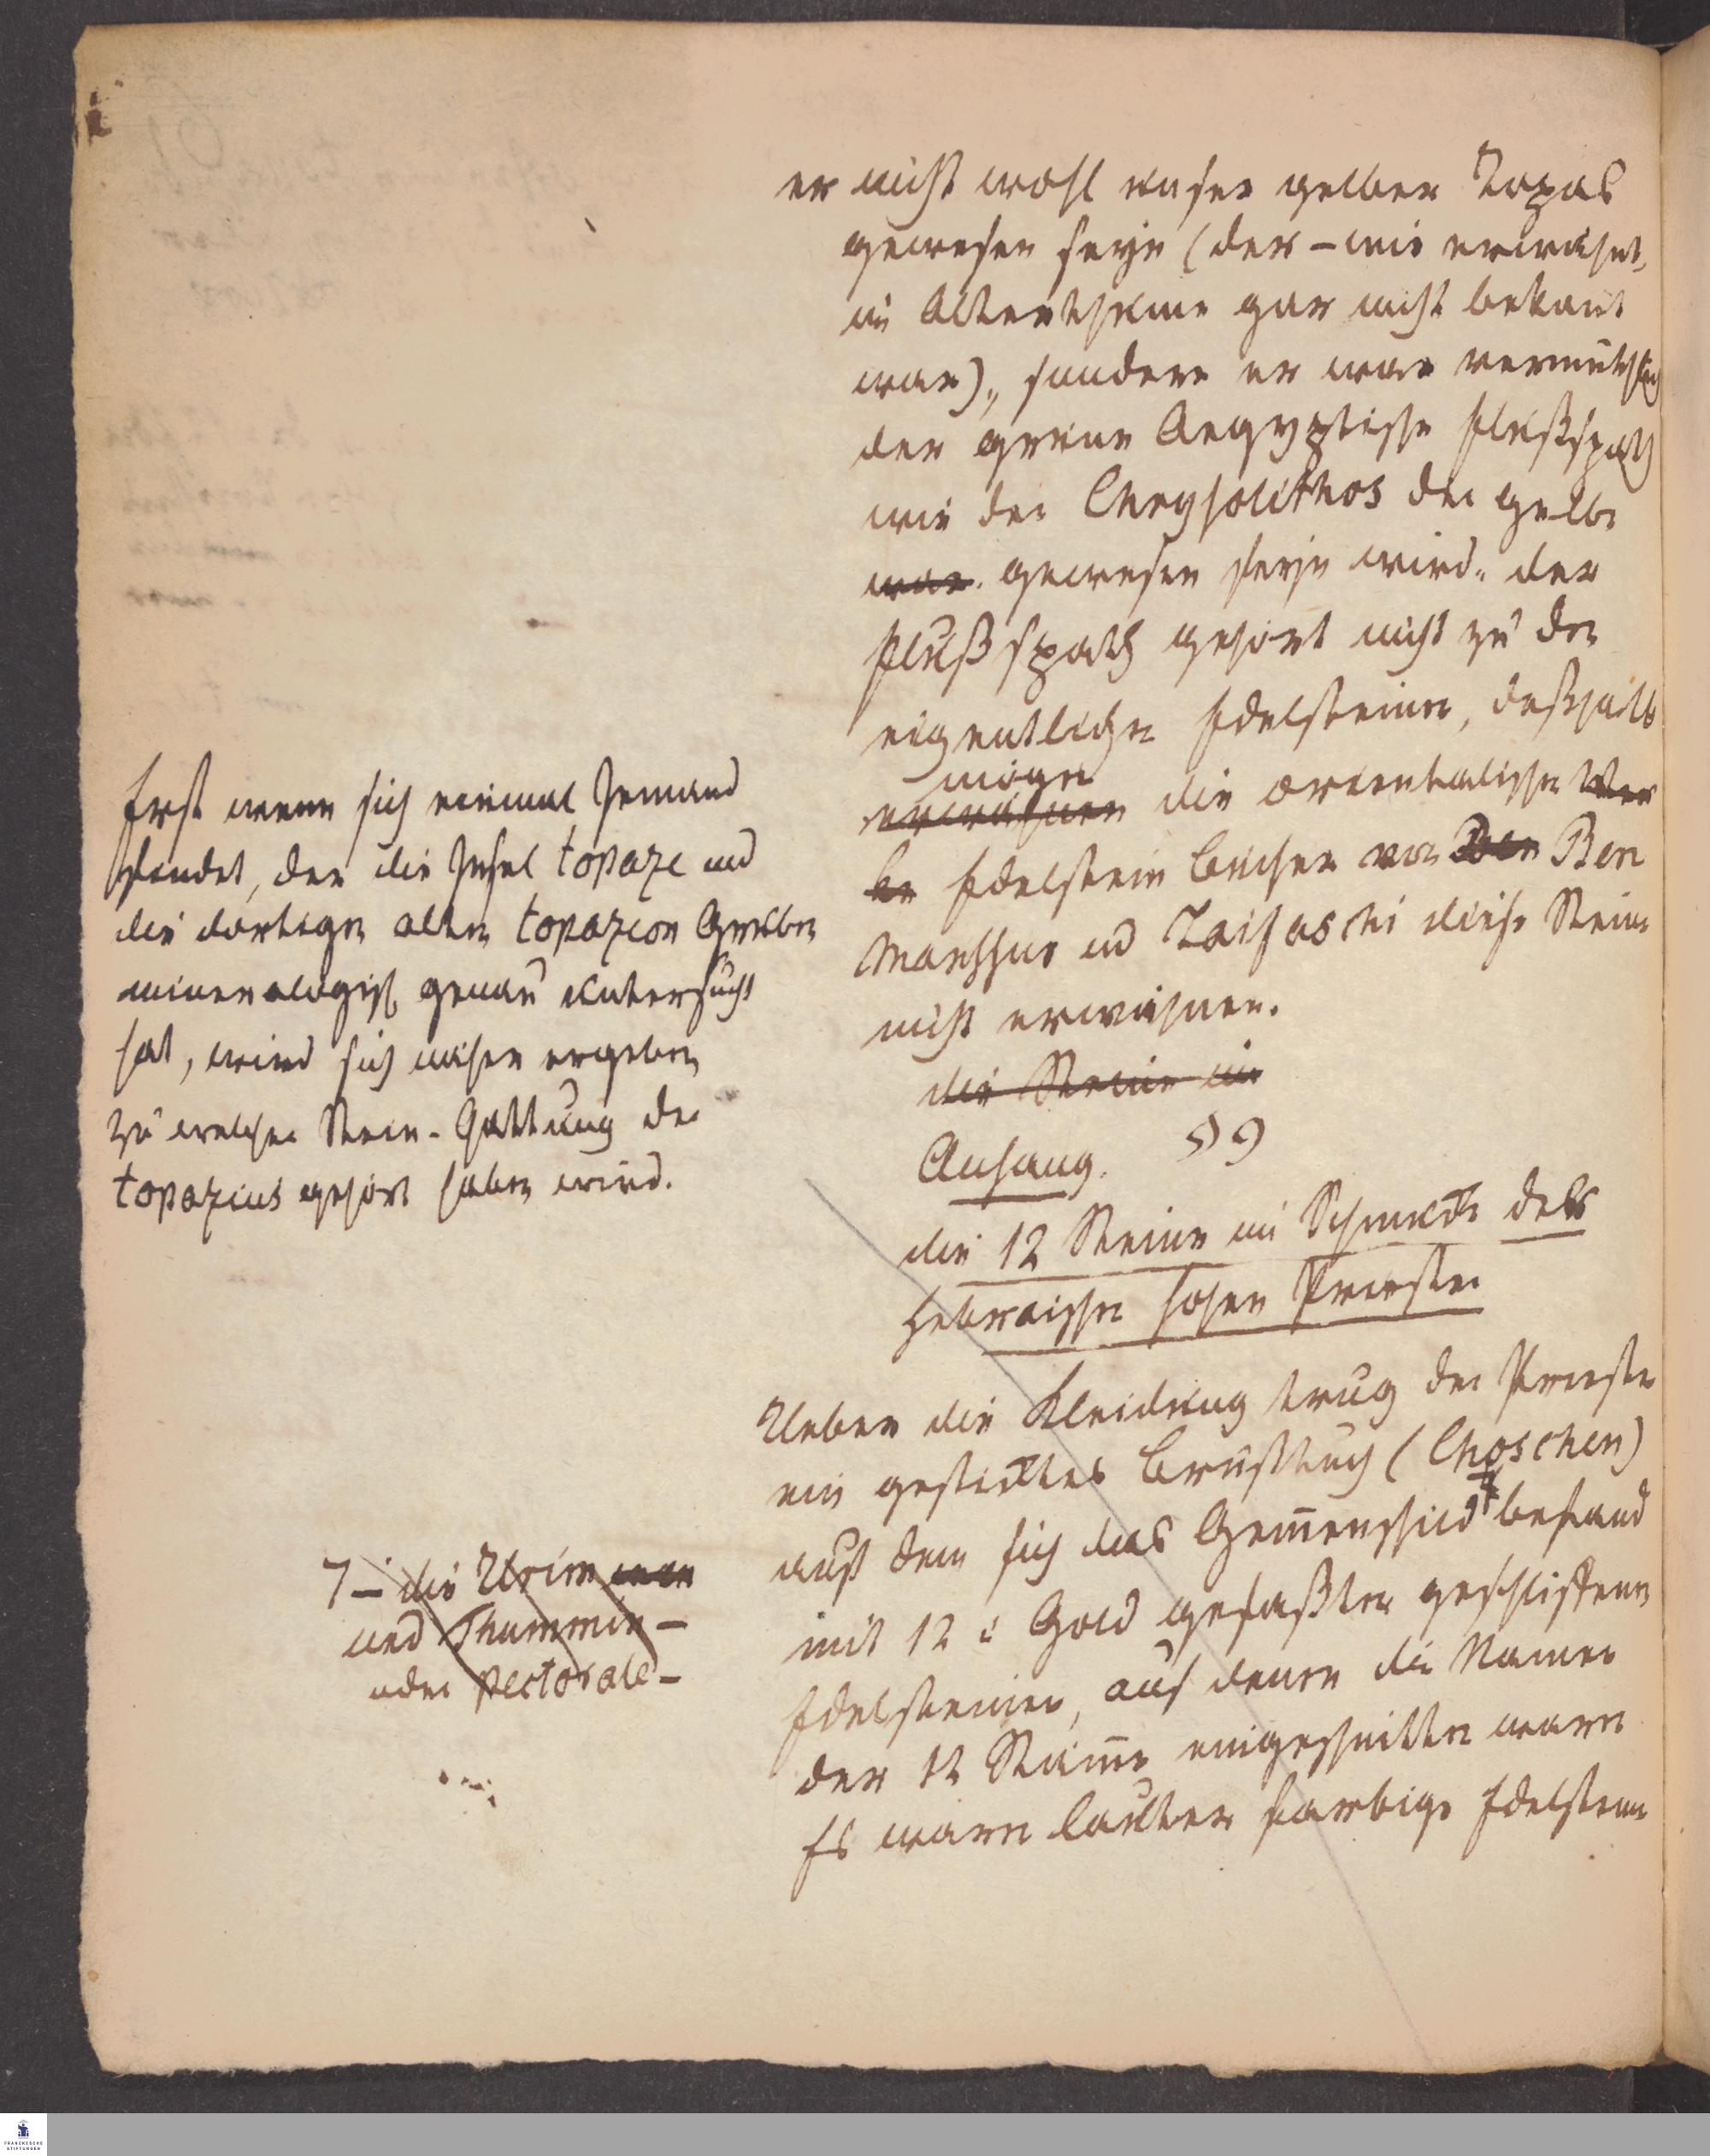 er nicht wohl unser gelber Topas
gewesen seyn (der – wie erwähnt,
im Alterthume gar nicht bekant
war)., sondern er war vermuthlich
der grüne Aegyptische Flußspath
wie der Chrysolithos der gelbe
war. gewesen seyn wird. der
Flußspath gehört nicht zu den
eigentlichen Edelsteinen, deßhalb
mögen
erwähnen die orientalischen Wer
ke Edelstein Bücher von Ben Ben
Manssur und Taifaschi diese Steine
nicht erwähnen.
die Steine im
Anhang.
die 12 Steine im Schmucke des
Hebraischen hohen Priester
Ueber die Kleidung trug der Priester
ein gesticktes Brusttuch (Choschen)
auf dem sich das Gem̄enschild befand
mit 12 i Gold gefaßten geschliffenen
Edelsteinen, auf denen die Namen
der 12 Stäm̄e eingeschnitten waren
Es waren lauter farbige Edelsteine
Erst wenn sich einmal Jemand
findet, der die Insel topaze und
die dortigen alten topazion Gruben
mineralogisch genau untersucht
hat, wird sich näher ergeben
zu welcher Stein-Gattung der
topazius gehört haben wird.
7 – die Urim
und Thummim –
oder pectorale –
FRANCKESCHE
STIFTUNGEN